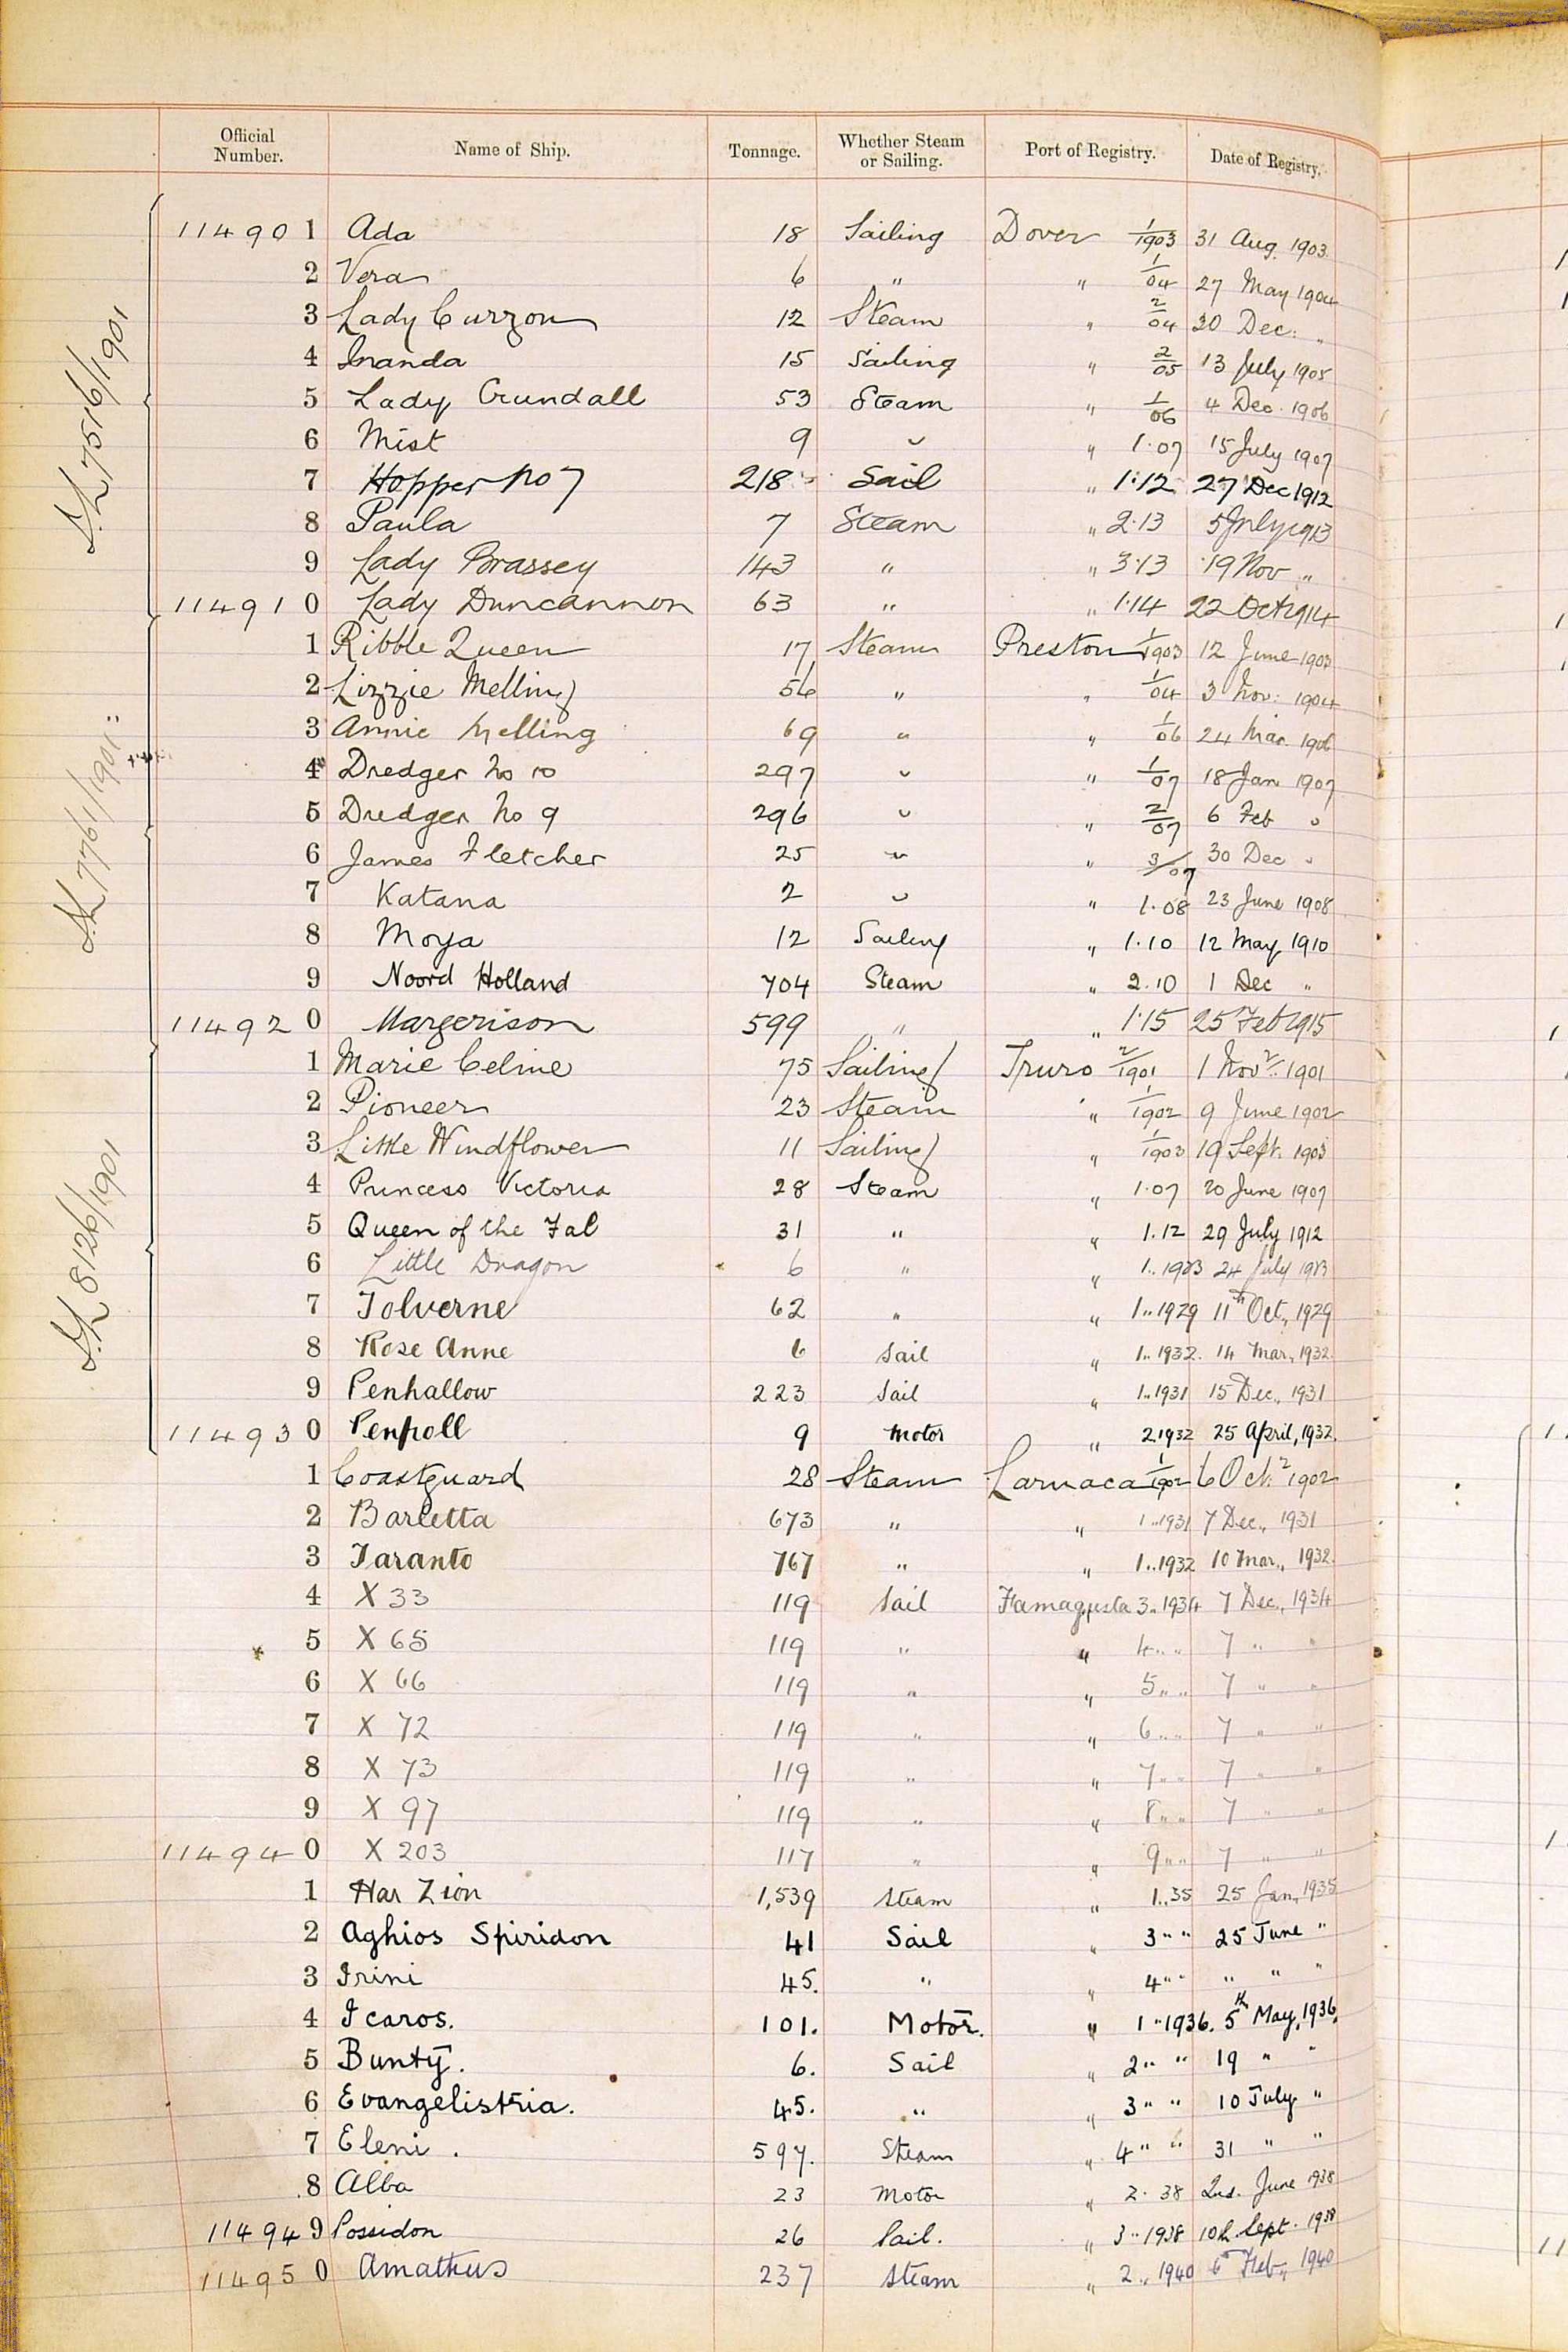 Official Number. Name of Ship. Tonnage. Whether Steam or Sailing. Port of Registry. Date of Registry.
114901 Ada 18 Sailing Dover 1/1903 31 Aug. 1903
2 Vera 6 " " 1/04 27 May 1904
3 Lady Curzon 12 Steam " 2/04 20 Dec: "
4 Inanda 15 Sailing " 2/05 13 July 1905
5 Lady Crundall 53 Steam " 1/06 4 Dec. 1906
6 Mist 9 " " 1.07 15 July 1907
7 Hopper No 7 218 Sail " 1.12 27 Dec 1912
8 Paula 7 Steam " 2.13 5 July 1913
9 Lady Brassey 143 " " 3.13 19 Nov "
114910 Lady Duncannon 63 " " 1.14 22 Oct 1914
1 Ribble Queen 17 Steam Preston 1/1903 12 June 1903
2 Lizzie Melling 56 " " 1/04 3 Nov: 1904
3 Annie Melling 69 " " 1/06 24 Mar. 1906
4 Dredger No 10 297 " " 1/07 18 Jan 1907
5 Dredger No 9 296 " " 2/07 6 Feb "
6 James Fletcher 25 " " 3/07 30 Dec "
7 Katana 2 " " 1.08 23 June 1908
8 Moya 12 Sailing " 1.10 12 May 1910
9 Noord Holland 704 Steam " 2.10 1 Dec "
114920 Margerison 599 " " 1.15 25 Feb 1915
1 Marie Celine 75 Sailing Truro 2/1901 1 Novr. 1901
2 Pioneer 23 Steam " 1/1902 9 June 1902
3 Little Windflower 11 Sailing " 1/1903 19 Sept. 1903
4 Princess Victoria 28 Steam " 1.07 20 June 1907
5 Queen of the Fal 31 " " 1.12 29 July 1912
6 Little Dragon 6 " " 1..1923 24 July 1923
7 Tolverne 62 " " 1..1929 11th Oct., 1929
8 Rose Anne 6 Sail " 1..1932. 14 Mar., 1932.
9 Penhallow 223 Sail " 1..1931 15 Dec., 1931
114930 Penpoll 9 Motor " 2.1932 25 April, 1932.
1 Coastguard 28 Steam Larnaca 1/1902 6 Octr. 1902
2 Barletta 673 " " 1..1931 7 Dec., 1931
3 Taranto 767 " " 1..1932 10 Mar., 1932.
4 X 33 119 Sail Famagusta 3..1934 7 Dec., 1934
5 X 65 119 " " 4.. " 7 " "
6 X 66 119 " " 5.. " 7 " "
7 X 72 119 " " 6.. " 7 " "
8 X 73 119 " " 7.. " 7 " "
9 X 97 119 " " 8.. " 7 " "
114940 X 203 117 " " 9.. " 7 " "
1 Har Zion 1,539 Steam " 1..35 25 Jan., 1935
2 Aghios Spiridon 41 Sail " 3.. " 25 June "
3 Irini 45. " " 4.. " " " "
4 Icaros. 101. Motor. " 1..1936. 5th May, 1936.
5 Bunty. 6. Sail " 2.. " 19 " "
6 Evangelistria. 45. " " 3.. " 10 July "
7 Eleni. 597. Steam " 4.. " 31 " "
8 Alba 23 Motor " 2. 38 2nd. June 1938
114949 Possidon 26 Sail. " 3..1938 10th. Sept. 1938
114950 Amathus 237 Steam " 2..1940 6th Feb., 1940
75176/1901
7761/1901
8126/1901